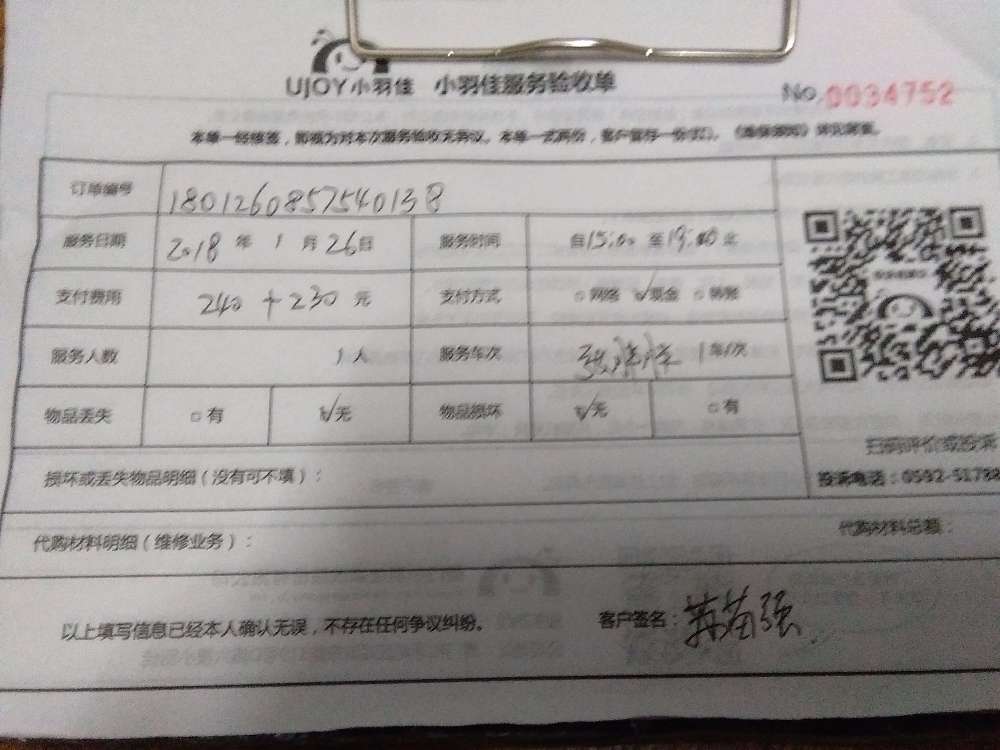 UJOY小羽佳 小羽佳服务验收单 No.0034752
本单一经修签，即视为对本次服务验收无异议。本单一式两份，客户留存一份
订单编号 1801260857540138
服务日期 2018年1月26日 服务时间 自15:00至19:00止
支付费用 240+230元 支付方式 □网络 ☑现金 □转账
服务人数 1人 服务车次 1车/次
物品丢失 □有 ☑无 物品损坏 ☑无 □有
扫码评价或投诉
损坏或丢失物品明细（没有可不填）：
投诉电话：0592-5178
代购材料明细（维修业务）： 代购材料总额：
以上填写信息已经本人确认无误，不存在任何争议纠纷。 客户签名：